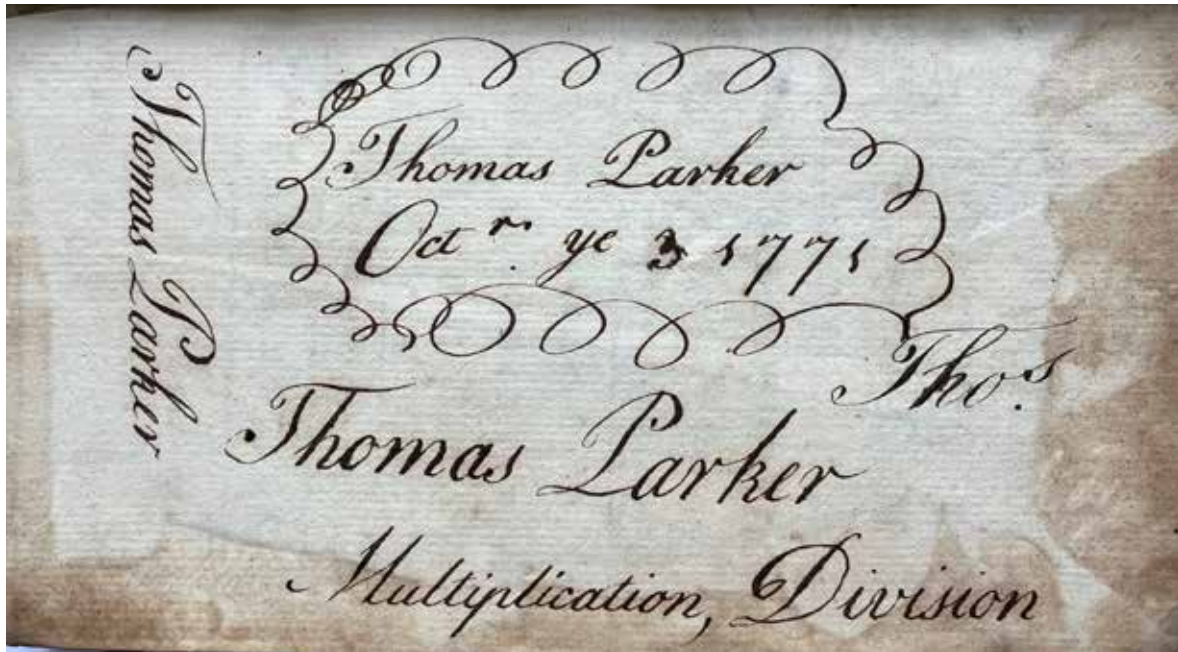 Thomas Parker
Thomas Parker
Octr. ye 3 1771
Thos.
Thomas Parker
Multiplication, Division